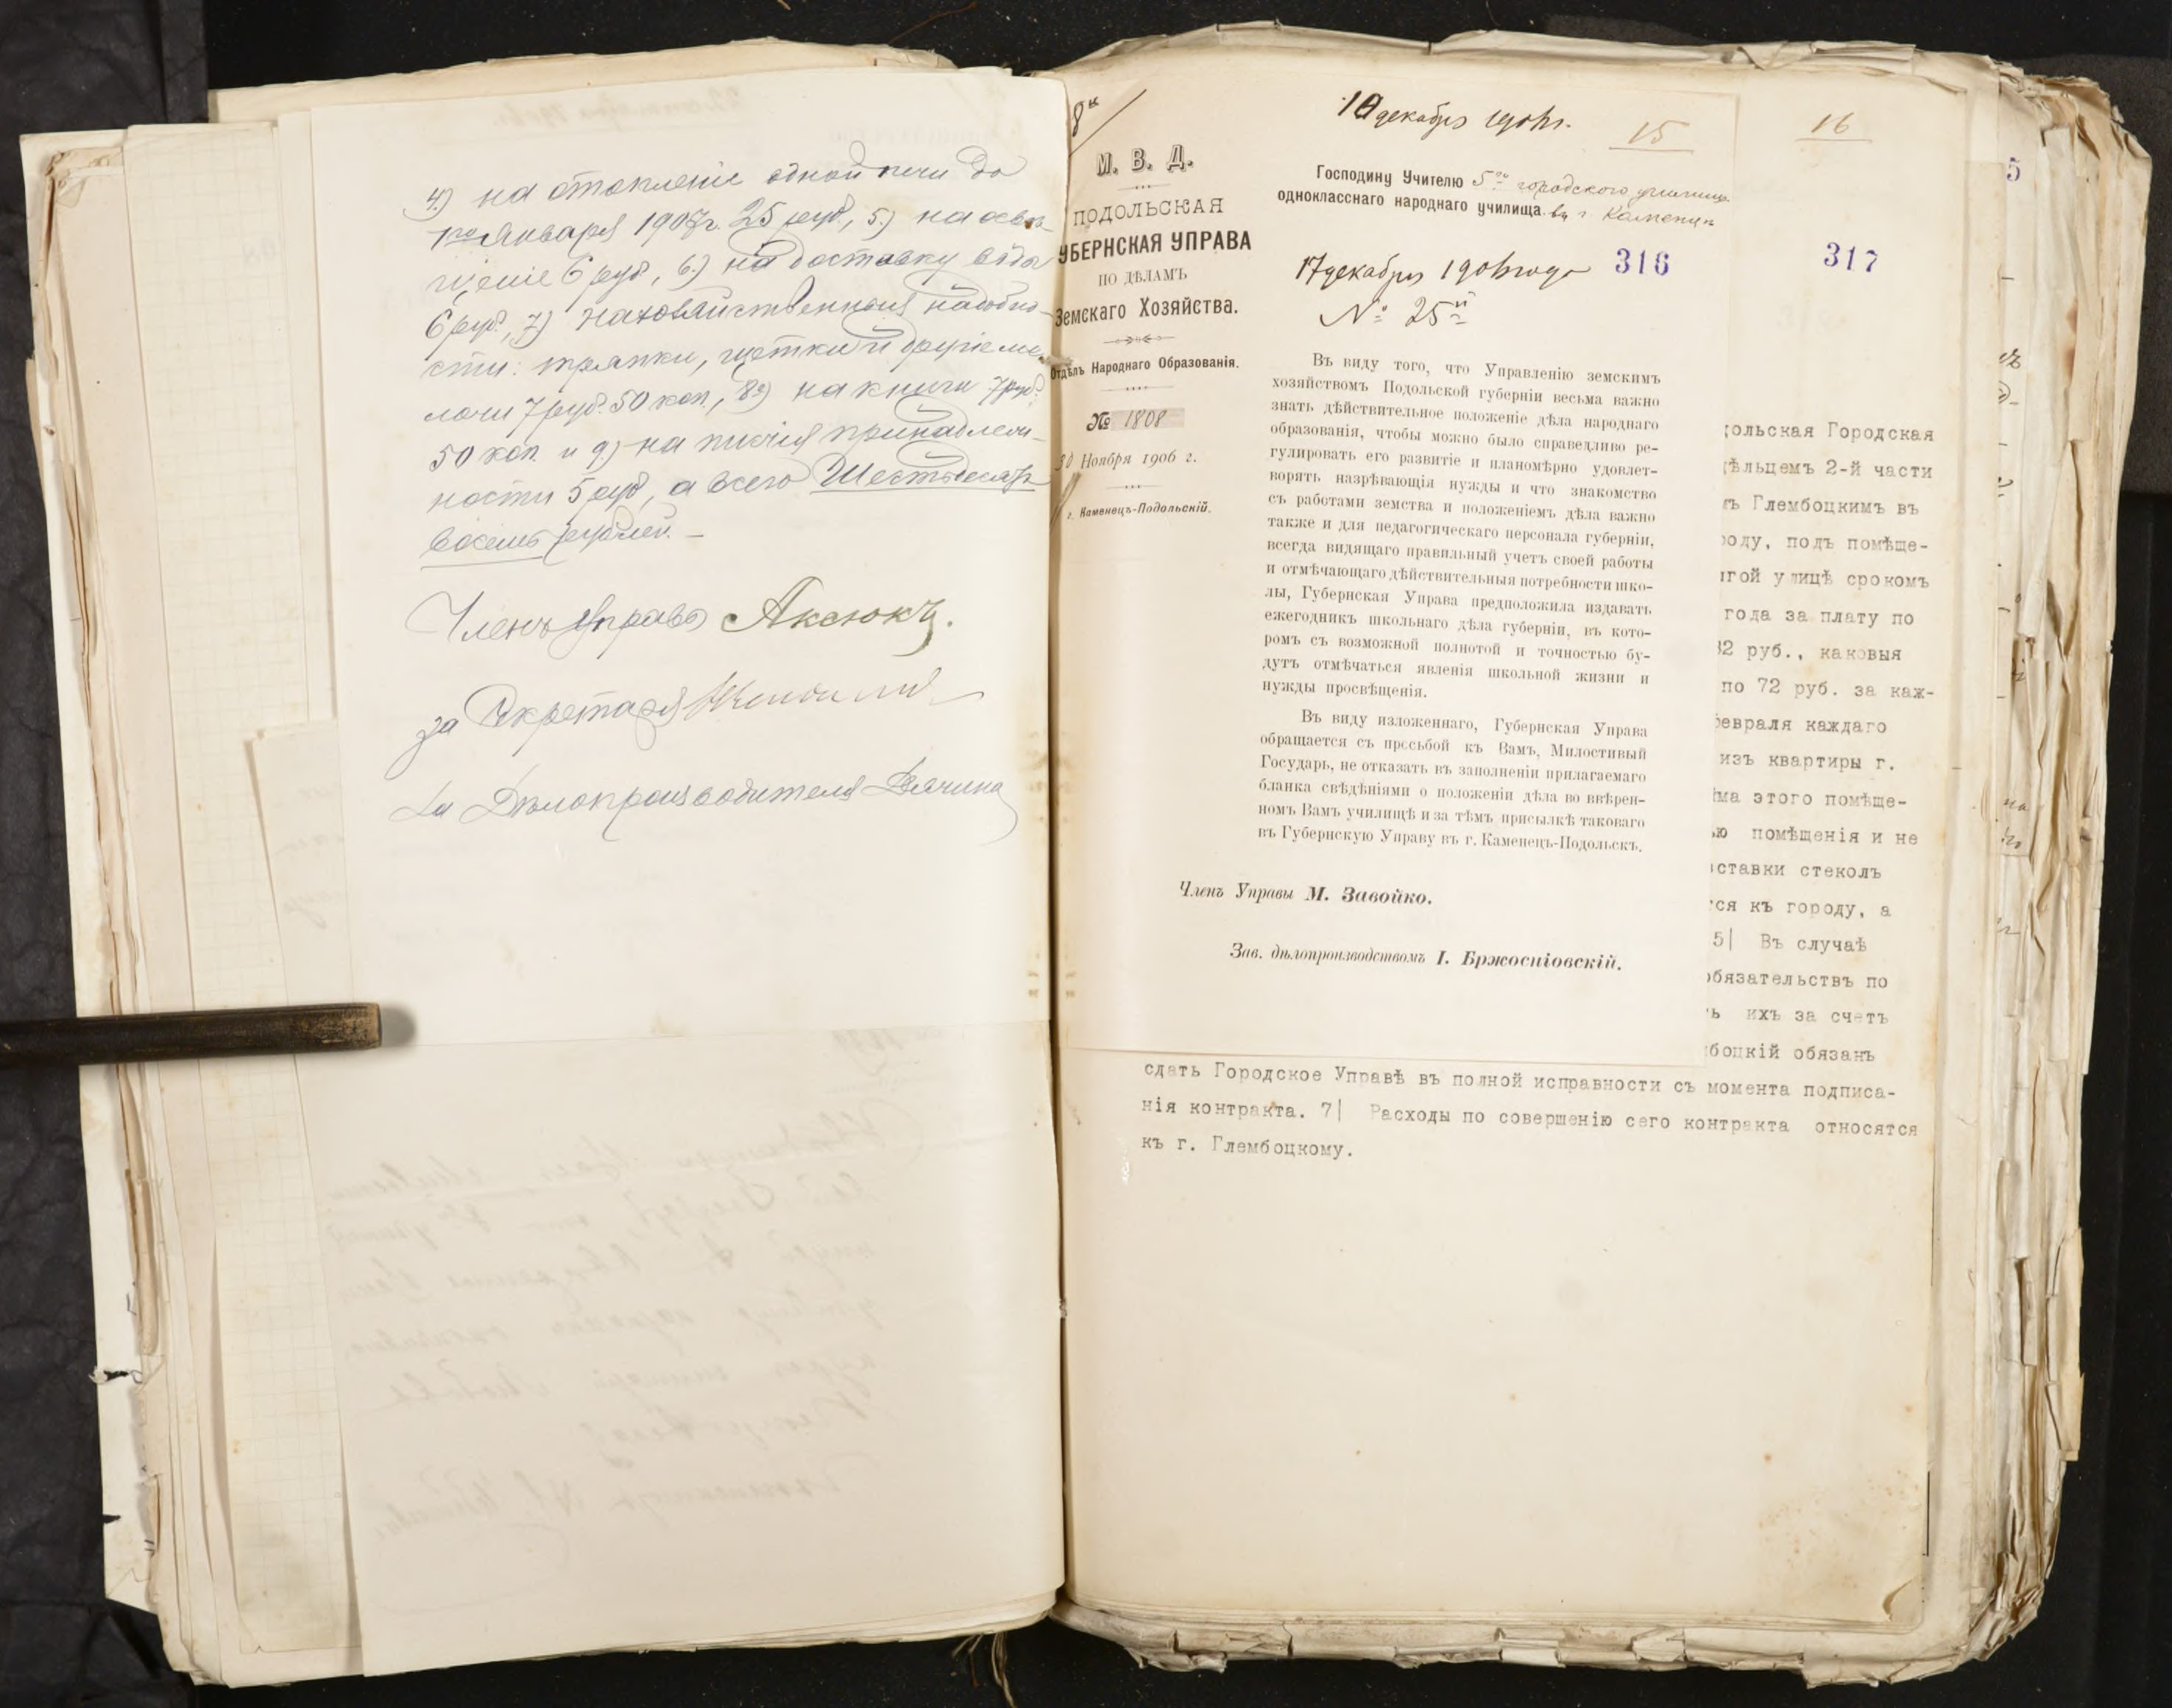 4.) на отопленіе одной печи до
1го Января 1907г. 25 руб, 5.) на освѣ-
щеніе 6 руб, 6.) на доставку воды
6 руб, 7) на хозяйственныя надобно-
сти: тряпки, щетки и другіе ме-
лочи 7 руб. 50 коп., 8) на книги 7 руб.
50 коп. и 9) на письм принадлеж-
ности 5 руб, а всего Шестьдесятъ
восемь рублей. —
Членъ Управы Аксюкъ.
за Секретаря
За Дѣлопроизводителя
М. В. Д.
ПОДОЛЬСКАЯ
УБЕРНСКАЯ УПРАВА
ПО ДѢЛАМЪ
Земскаго Хозяйства.
Отдѣлъ Народнаго Образованія.
№ 1808
30 Ноября 1906 г.
г. Каменецъ-Подольскій.
декабря 1906г.
15
Господину Учителю 5го городского училища
однокласснаго народнаго училища въ г. Каменцѣ
17 декабря 1906 года
316
№ 25й
Въ виду того, что Управленію земскимъ
хозяйствомъ Подольской губерніи весьма важно
знать дѣйствительное положеніе дѣла народнаго
образованія, чтобы можно было справедливо ре-
гулировать его развитіе и планомѣрно удовлет-
ворять назрѣвающія нужды и что знакомство
съ работами земства и положеніемъ дѣла важно
также и для педагогическаго персонала губерніи,
всегда видящаго правильный учетъ своей работы
и отмѣчающаго дѣйствительныя потребности шко-
лы, Губернская Управа предположила издавать
ежегодникъ школьнаго дѣла губерніи, въ кото-
ромъ съ возможной полнотой и точностью бу-
дутъ отмѣчаться явленія школьной жизни и
нужды просвѣщенія.
Въ виду изложеннаго, Губернская Управа
обращается съ просьбой къ Вамъ, Милостивый
Государь, не отказать въ заполненіи прилагаемаго
бланка свѣдѣніями о положеніи дѣла во ввѣрен-
номъ Вамъ училищѣ и за тѣмъ присылкѣ таковаго
въ Губернскую Управу въ г. Каменецъ-Подольскъ.
Членъ Управы М. Завойко.
Зав. дѣлопроизводствомъ І. Бржосніовскій.
16
317
дольская Городская
дѣльцемъ 2-й части
мъ Глембоцкимъ въ
роду, подъ помѣще-
лгой улицѣ срокомъ
года за плату по
32 руб., каковыя
по 72 руб. за каж-
февраля каждаго
изъ квартиры г.
ѣма этого помѣще-
ью помѣщенія и не
оставки стеколъ
тся къ городу, а
5| Въ случаѣ
обязательствъ по
ь ихъ за счетъ
боцкій обязанъ
сдать Городское Управѣ въ полной исправности съ момента подписа-
нія контракта. 7| Расходы по совершенію сего контракта относятся
къ г. Глембоцкому.
5